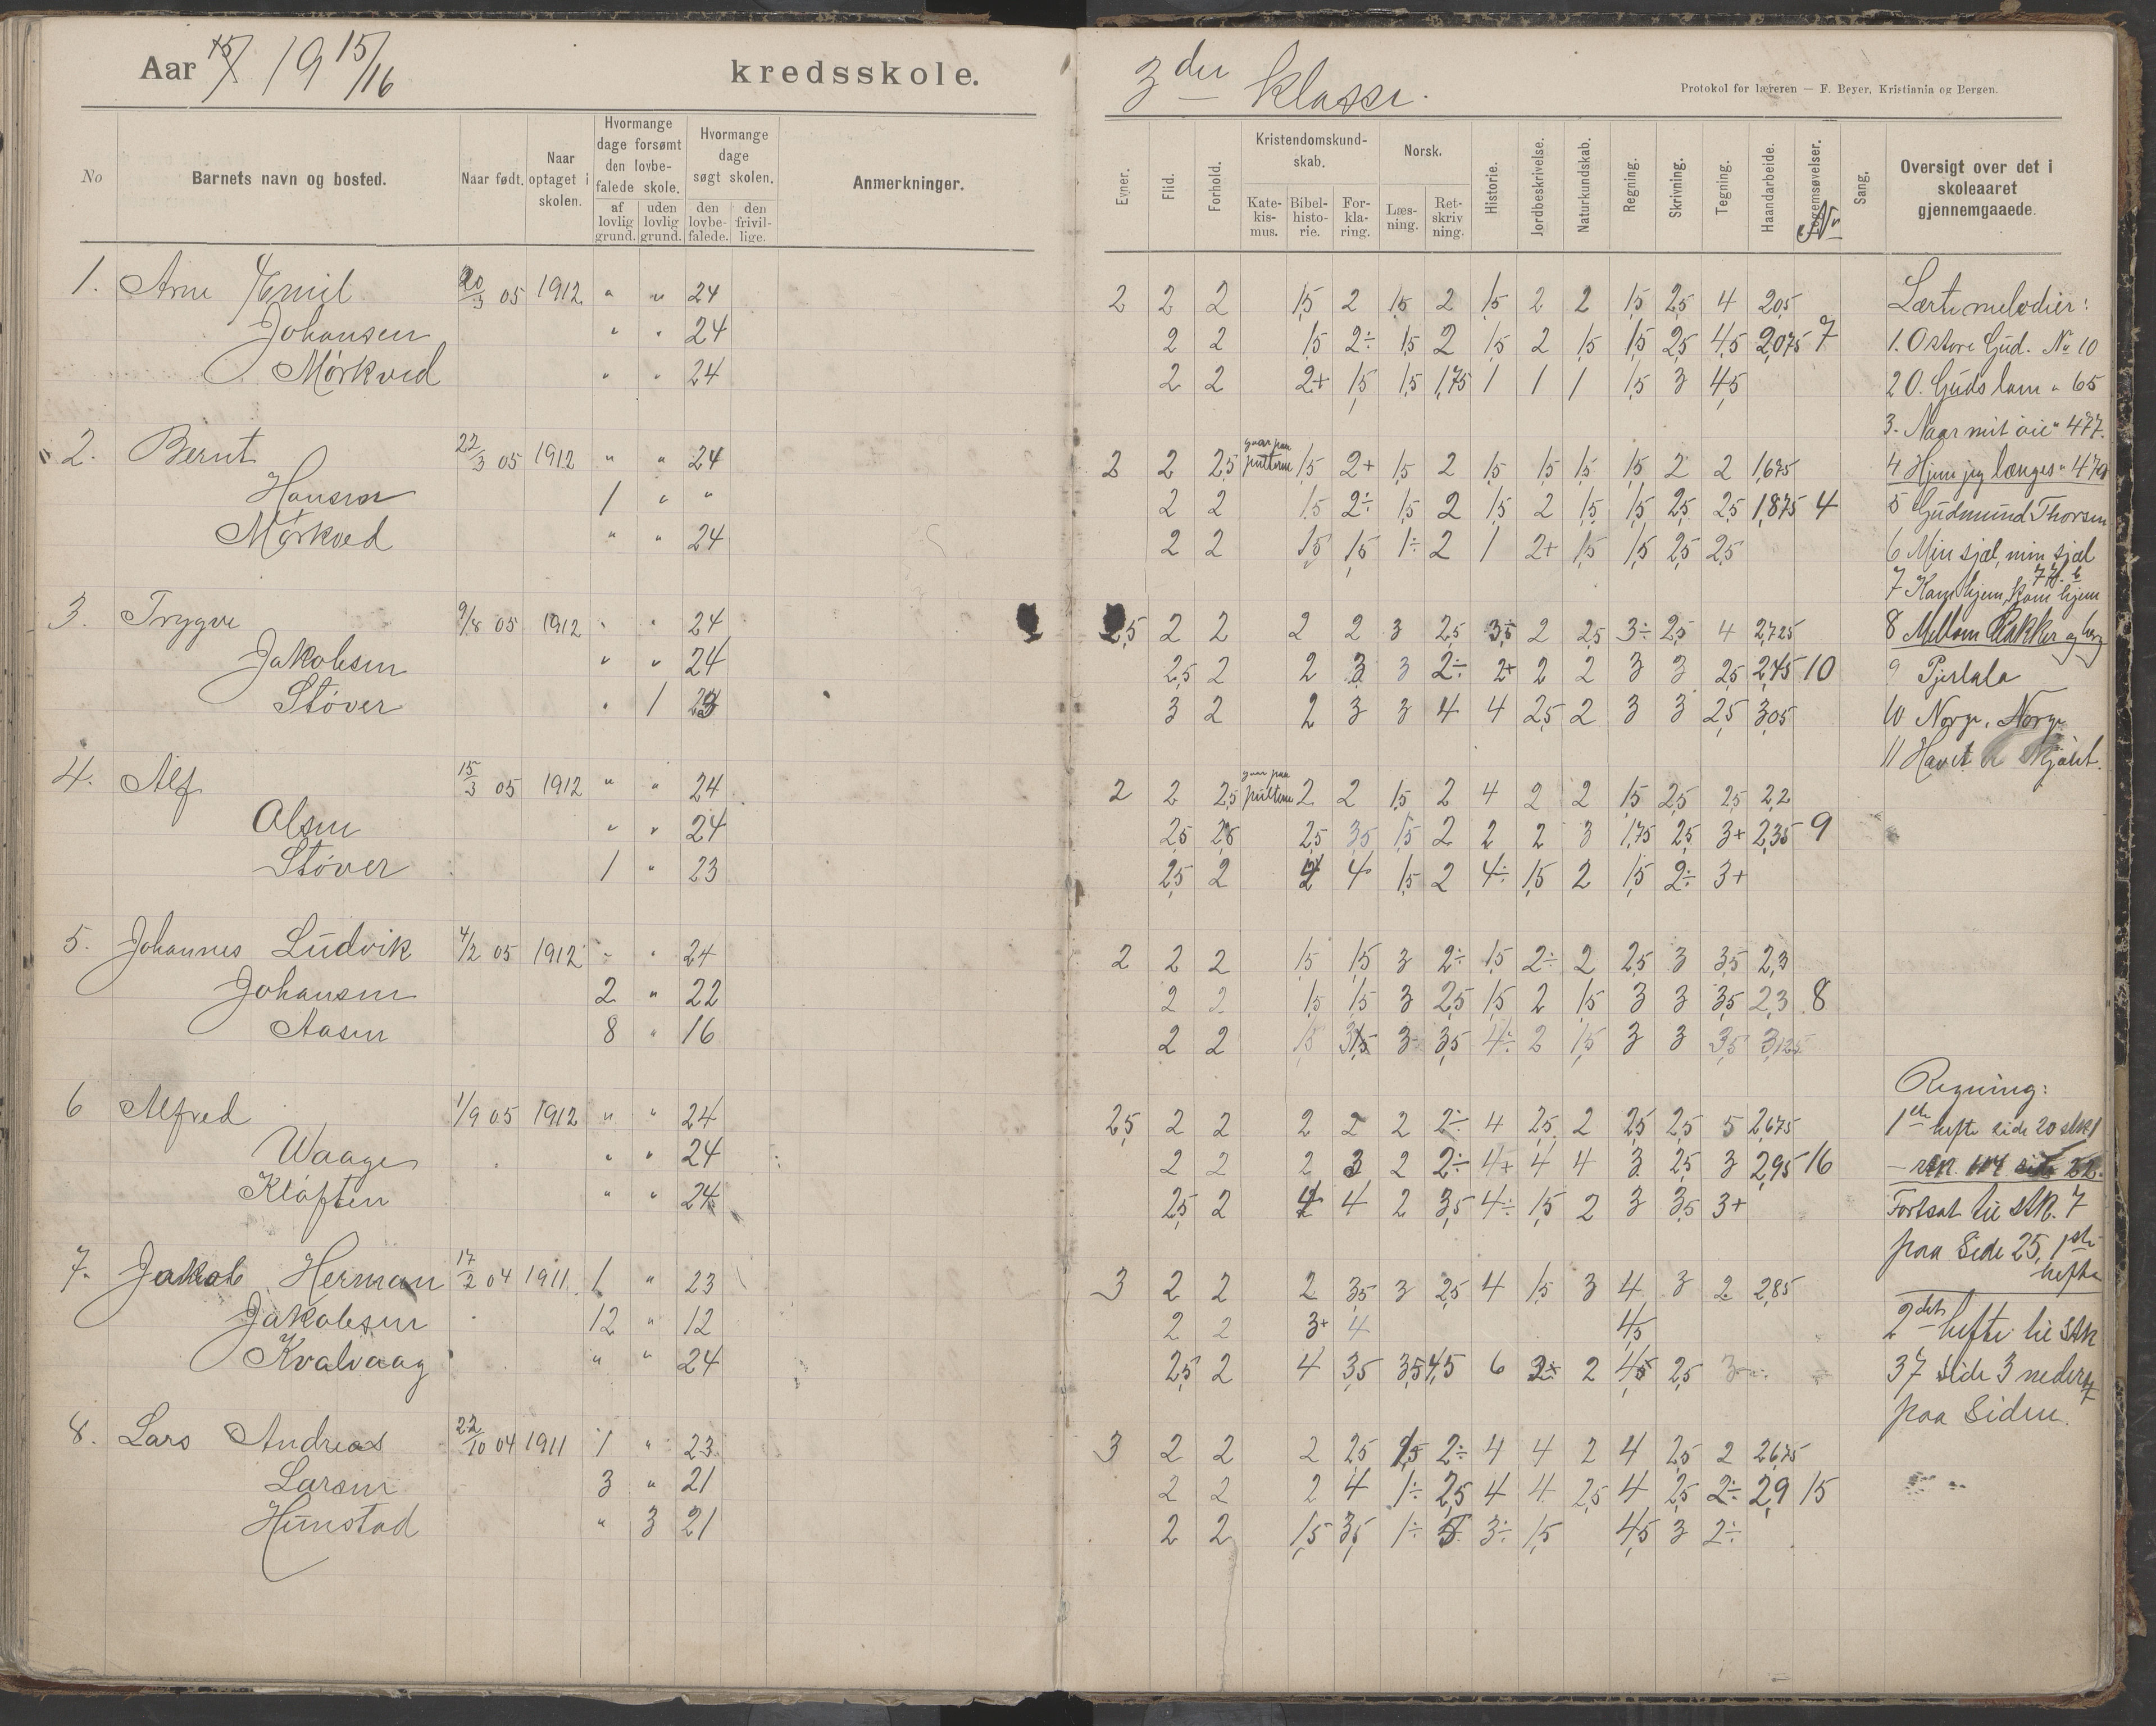 Aar 19 15/16 kredsskole.
3die klasse.
Protokol for læreren — F. Beyer, Kristiania og Bergen.
No
Barnets navn og bosted.
Naar født.
Naar optaget i skolen.
Hvormange dage forsømt den lovbefalede skole.
af lovlig grund.
uden lovlig grund.
Hvormange dage søgt skolen.
den lovbefalede.
den frivillige.
Anmerkninger.
Evner.
Flid.
Forhold.
Kristendomskundskab.
Katekismus.
Bibelhistorie.
Forklaring.
Norsk.
Læsning.
Retskrivning.
Historie.
Jordbeskrivelse.
Naturkundskab.
Regning.
Skrivning.
Tegning.
Haandarbeide.
Legemsøvelser.
Nr
Sang.
Oversigt over det i skoleaaret gjennemgaaede.
1. Arne Emil 20/3 05 1912 " " 24 2 2 2 1,5 2 1,5 2 1,5 2 2 1,5 2,5 4 2,05
Johansen " " 24 2 2 1,5 2÷ 1,5 2 1,5 2 1,5 1,5 2,5 4,5 2,075 7
Mörkved " " 24 2 2 2+ 1,5 1,5 1,75 1 1 1 1,5 3 4,5
2. Bernt 22/3 05 1912 " " 24 2 2 2,5 gaar paa pultene 1,5 2+ 1,5 2 1,5 1,5 1,5 1,5 2 2 1,675
Hansen 1 " " 2 2 1,5 2÷ 1,5 2 1,5 2 1,5 1,5 2,5 2,5 1,875 4
Mörkved " " 24 2 2 1,5 1,5 1÷ 2 1 2+ 1,5 1,5 2,5 2,5
3. Trygve 9/8 05 1912 " " 24 2,5 2 2 2 2 3 2,5 3,5 2 2,5 3÷ 2,5 4 2,725
Jakobsen " " 24 2,5 2 2 3 3 2÷ 2+ 2 2 3 3 2,5 2,45 10
Støver " 1 23 3 2 2 3 3 4 4 2,5 2 3 3 2,5 3,05
4. Alf 15/3 05 1912 " " 24 2 2 2,5 gaar paa pultene 2 2 1,5 2 4 2 2 1,5 2,5 2,5 2,2
Olsen " " 24 2,5 2,5 2,5 3,5 1,5 2 2 2 3 1,75 2,5 3+ 2,35 9
Støver 1 " 23 2,5 2 4 1,5 2 4÷ 1,5 2 1,5 2÷ 3+
5. Johannes Ludvik 4/2 05 1912 " " 24 2 2 2 1,5 1,5 3 2÷ 1,5 2÷ 2 2,5 3 3,5 2,3
Johansen 2 " 22 2 2 1,5 1,5 3 2,5 1,5 2 1,5 3 3 3,5 2,3 8
Aasen 8 " 16 2 2 1,5 3 3,5 4÷ 2 1,5 3 3 3,5 3,125
6 Alfred 1/9 05 1912 " " 24 2,5 2 2 2 2 2 2÷ 4 2,5 2 2,5 2,5 5 2,675
Waage " " 24 2 2 2 3 2 2÷ 4+ 4 4 3 2,5 3 2,95 16
Kløften " " 24 2,5 2 4 2 3,5 4÷ 1,5 2 3 3,5 3+
7. Jakob Herman 17/2 04 1911 1 " 23 3 2 2 2 3,5 3 2,5 4 1,5 3 4 3 2 2,85
Jakobsen 12 " 12 2 2 3+ 4 4,5
Kvalvaag " " 24 2,5 2 4 3,5 3,5 4,5 6 2 4,5 2,5 3
8. Lars Andreas 22/10 04 1911 1 " 23 3 2 2 2 2,5 1,5 2÷ 4 4 2 4 2,5 2 2,675
Larsen 3 " 21 2 2 2 4 1÷ 2,5 4 4 2,5 4 2,5 2÷ 2,9 15
Hunstad " 3 21 2 2 1,5 3,5 1÷ 3÷ 1,5 4,5 3 2÷
Lærte melodier:
1. O store Gud. No 10
2 O. Guds lam " 65
3. Naar mit øie " 477.
4 Hjem jeg længes " 479
5 Gudmund Thorsen
6 Min sjæl, min sjæl
7 Kom hjem, kom hjem
8 Mellem Bakker og berg
9 Pjerlala
10 Norge, Norge
11 Havet er skjønt.
Regning:
1ste hefte side 20 stk 1
Fortsat til stk. 7
paa Side 25, 1ste
hefte
2det hefte til stk
37 side 3 nederst
paa Siden.